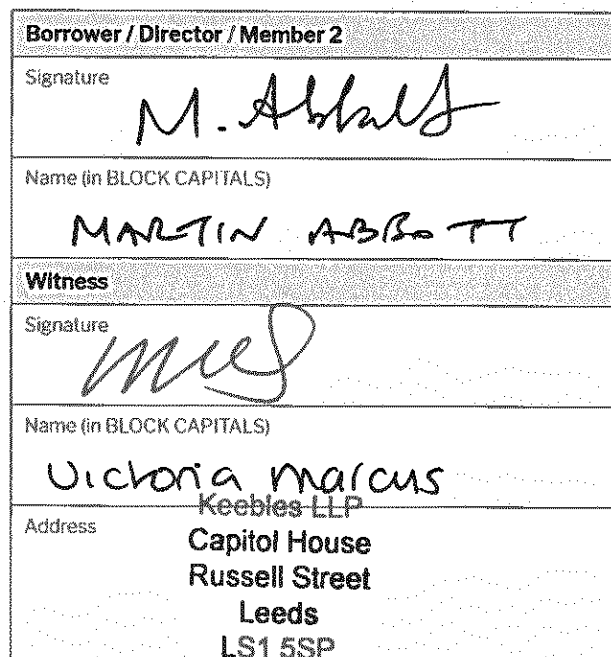 Borrower / Director / Member 2
Signature
M. Abbott
Name (in BLOCK CAPITALS)
MARTIN ABBOTT
Witness
Signature
Name (in BLOCK CAPITALS)
Victoria Marcus
Address
Keebles LLP
Capitol House
Russell Street
Leeds
LS1 5SP